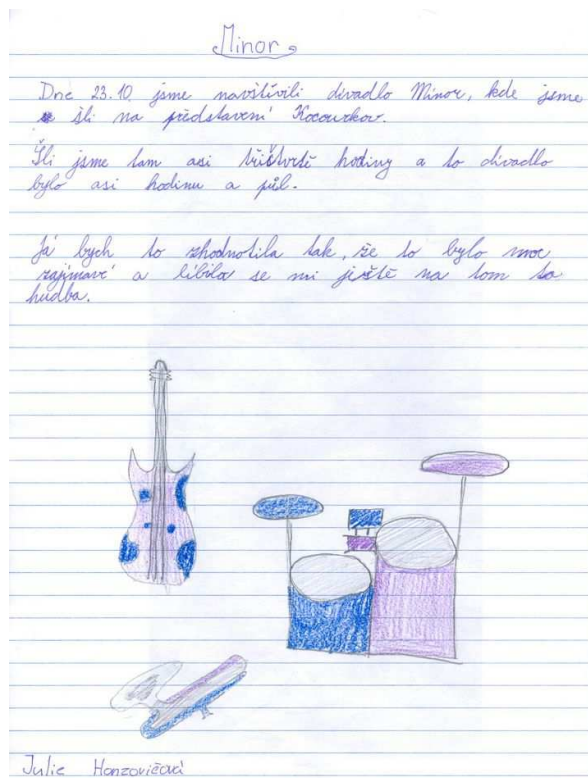 Minor
Dne 23.10. jsme navštívili divadlo Minor, kde jsme
šli na představení Kocourkov.
Šli jsme tam asi tričtvrtě hodiny a to divadlo
bylo asi hodinu a půl.
Já bych to zhodnotila tak, že to bylo moc
zajímavé a líbila se mi ještě na tom ta
hudba.
Julie